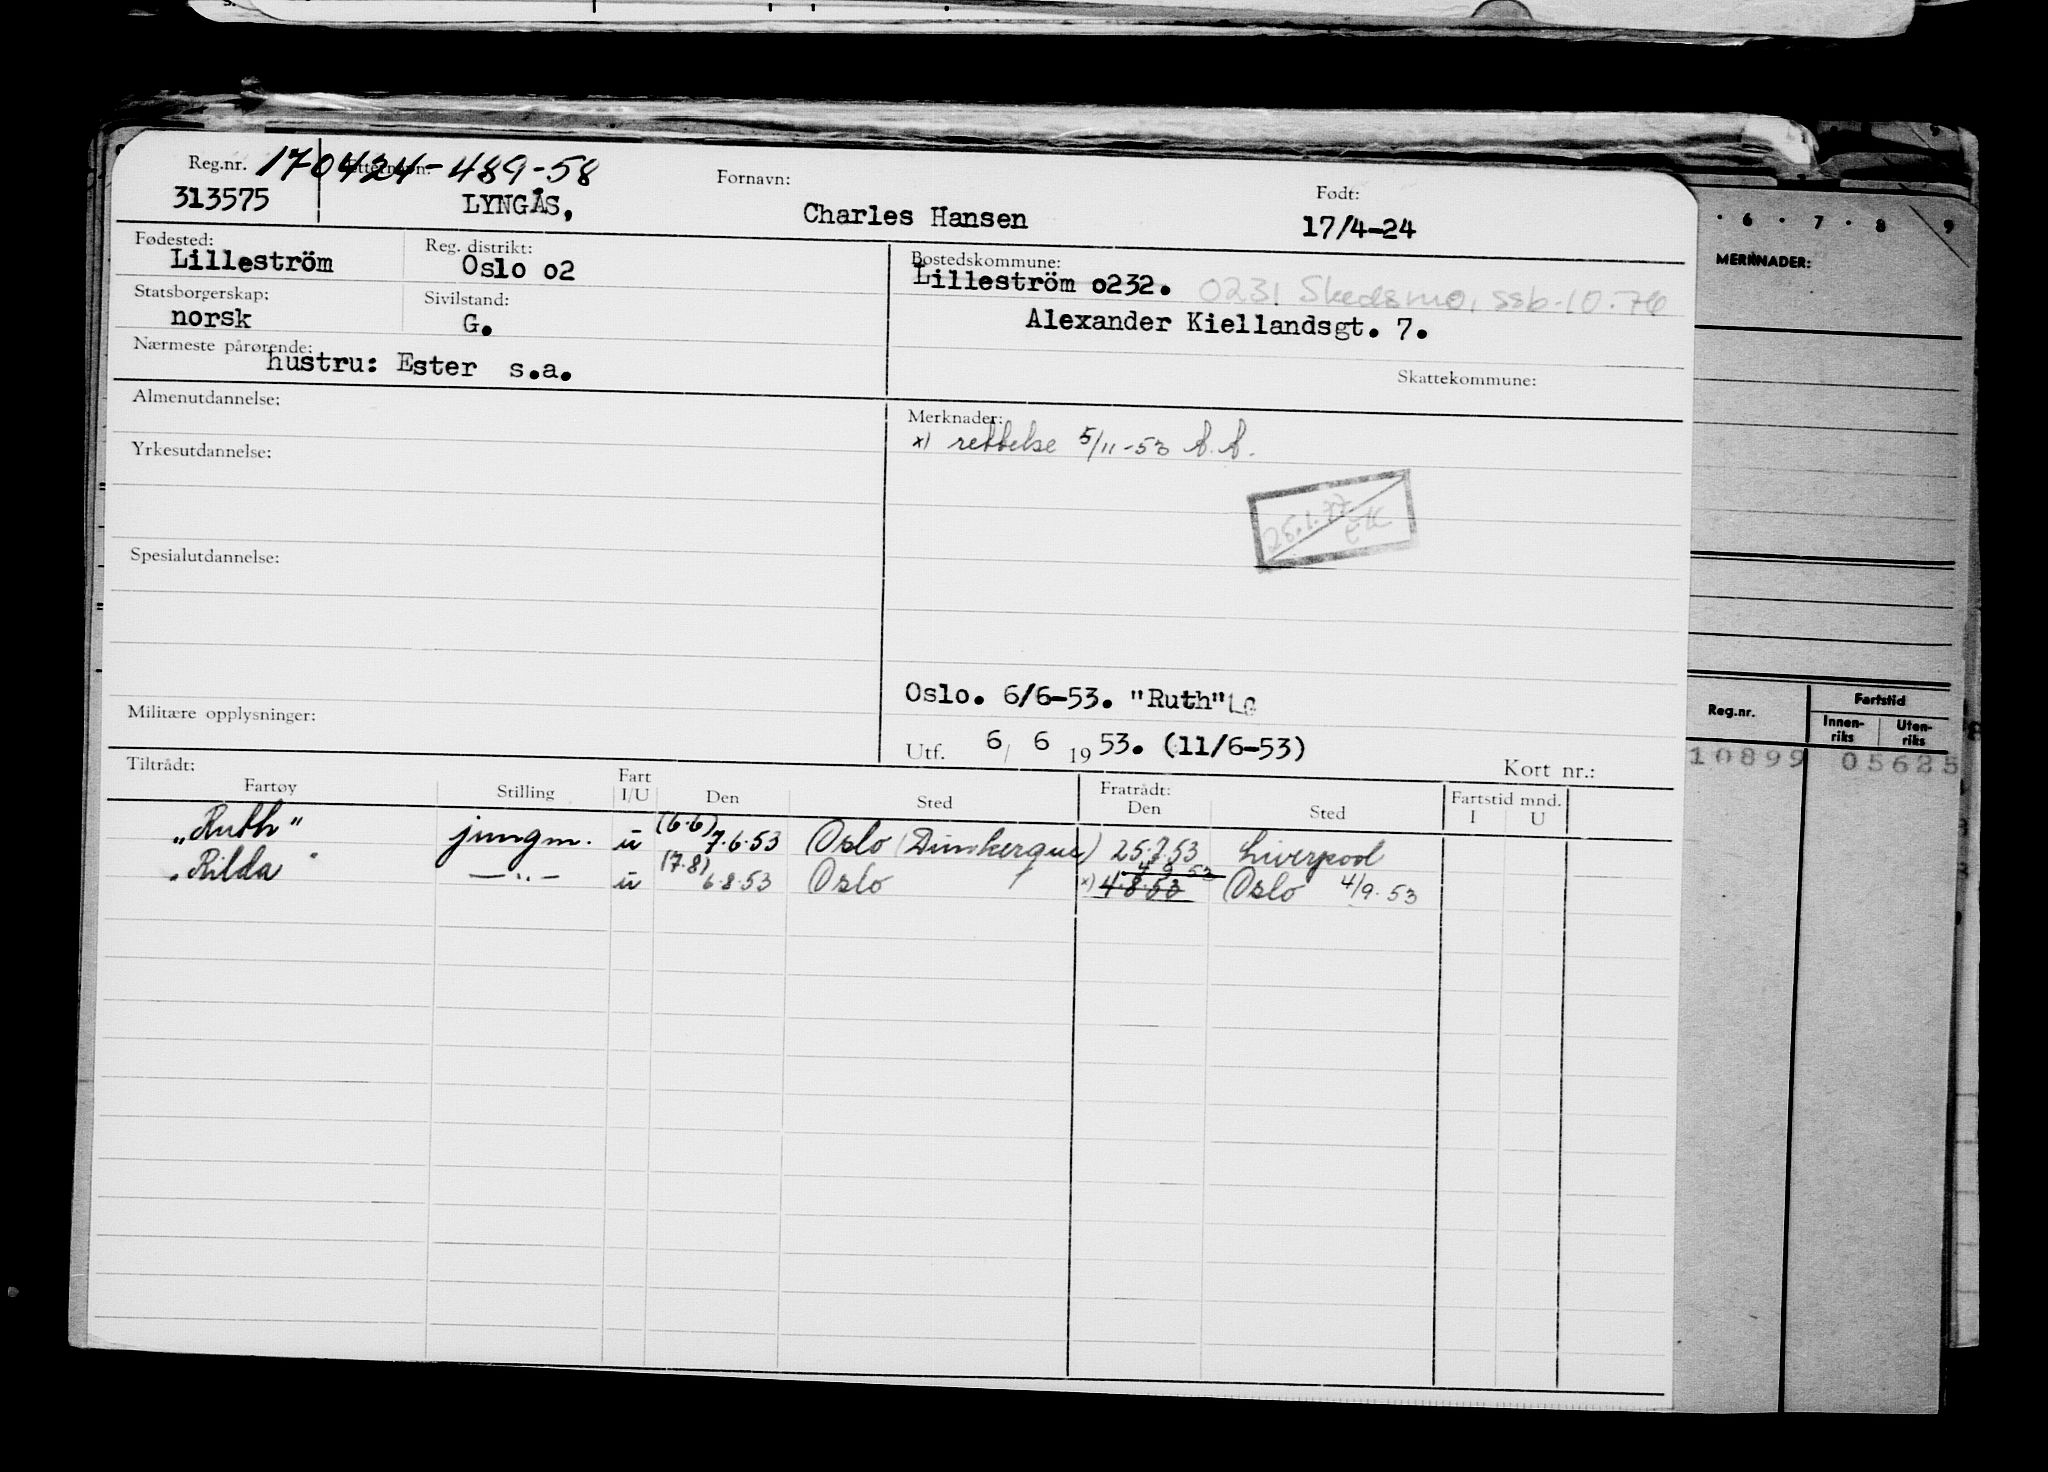 Reg.nr. 170424-489-58 Etternavn: Fornavn: Født:
313575 LYNGÅS, Charles Hansen 17/4-24
Fødested: Reg. distrikt: Bostedskommune:
Lilleström Oslo o2 Lilleström o232. 0231 Skedsmo, ssb-10.76
Statsborgerskap: Sivilstand:
norsk G. Alexander Kiellandsgt. 7.
Nærmeste pårørende:
hustru: Ester s.a. Skattekommune:
Almenutdannelse: Merknader:
x) rettelse 5/11-53
Yrkesutdannelse:
25.1.77
Spesialutdannelse:
Oslo. 6/6-53. "Ruth" LG
Militære opplysninger:
Utf. 6/ 6 1953. (11/6-53) Kort nr.:
Tiltrådt: Fratrådt:
Fartøy Stilling Fart I/U Den Sted Den Sted Fartstid mnd. I U
„Ruth" jungm. u (6.6) 7.6.53 Oslo (Dunkerque) 25.7.53 Liverpool
„Rilda" —"— u (7.8) 6.8.53 Oslo x) 4.8.53 4.9.53 Oslo 4/9.53
· 6 · 7 · 8 9
MERKNADER:
Reg.nr. Fartstid
Innen-riks Uten-riks
10899 05625